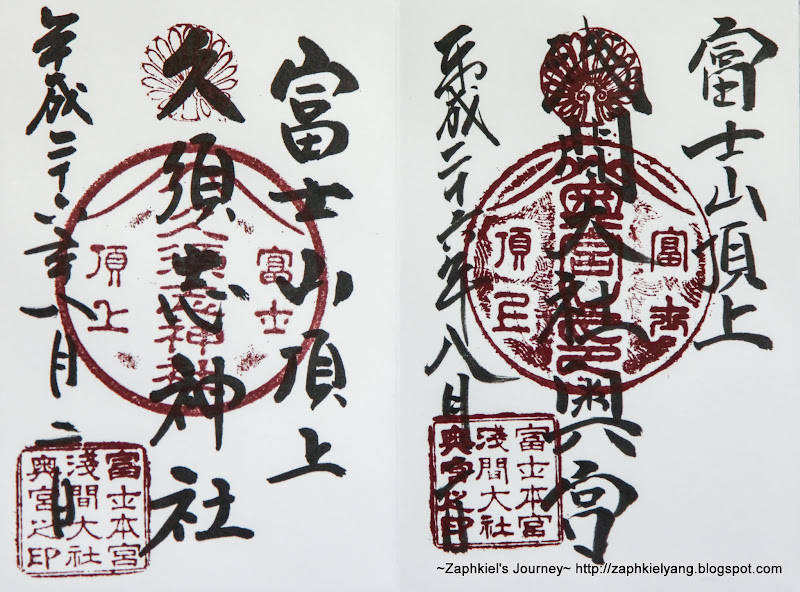 富士山頂上
浅間大社奥宮
平成二十六年八月二日
富士
頂上
富士本宮
淺間大社
奥宮之印
富士山頂上
久須志神社
平成二十六年八月二日
富士
久須志神社
頂上
富士本宮
淺間大社
奥宮之印
~Zaphkiel's Journey~ http://zaphkielyang.blogspot.com